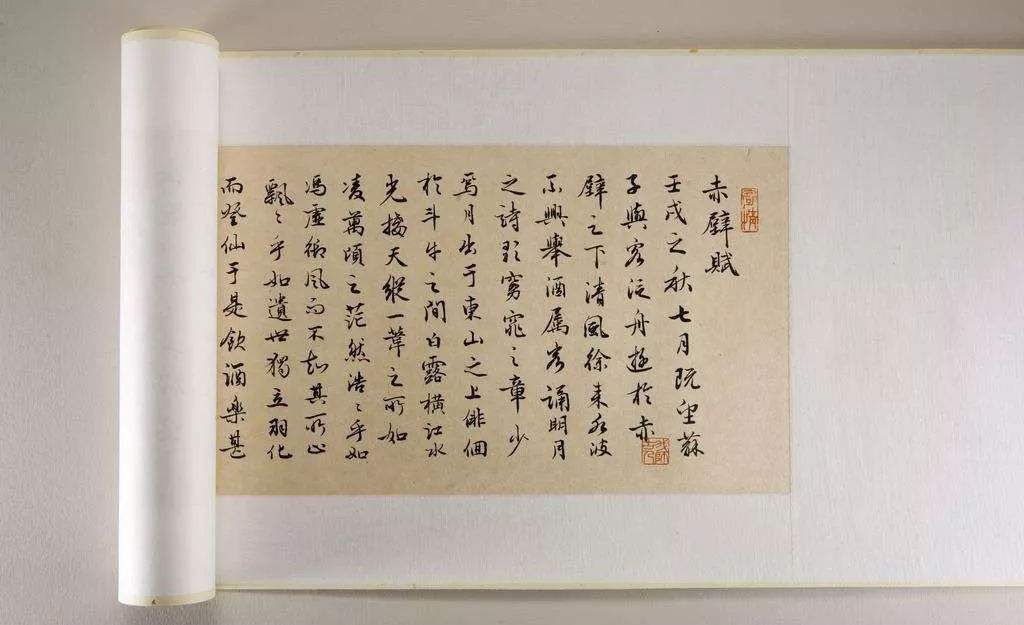 赤壁賦
壬戌之秋七月既望蘇
子與客泛舟遊於赤
壁之下清風徐來水波
不興舉酒屬客誦明月
之詩歌窈窕之章少
焉月出于東山之上俳佪
於斗牛之間白露橫江水
光接天縱一葦之所如
凌萬頃之茫然浩〻乎如
馮虛御風而不知其所止
飄〻乎如遺世獨立羽化
而登仙于是飲酒樂甚